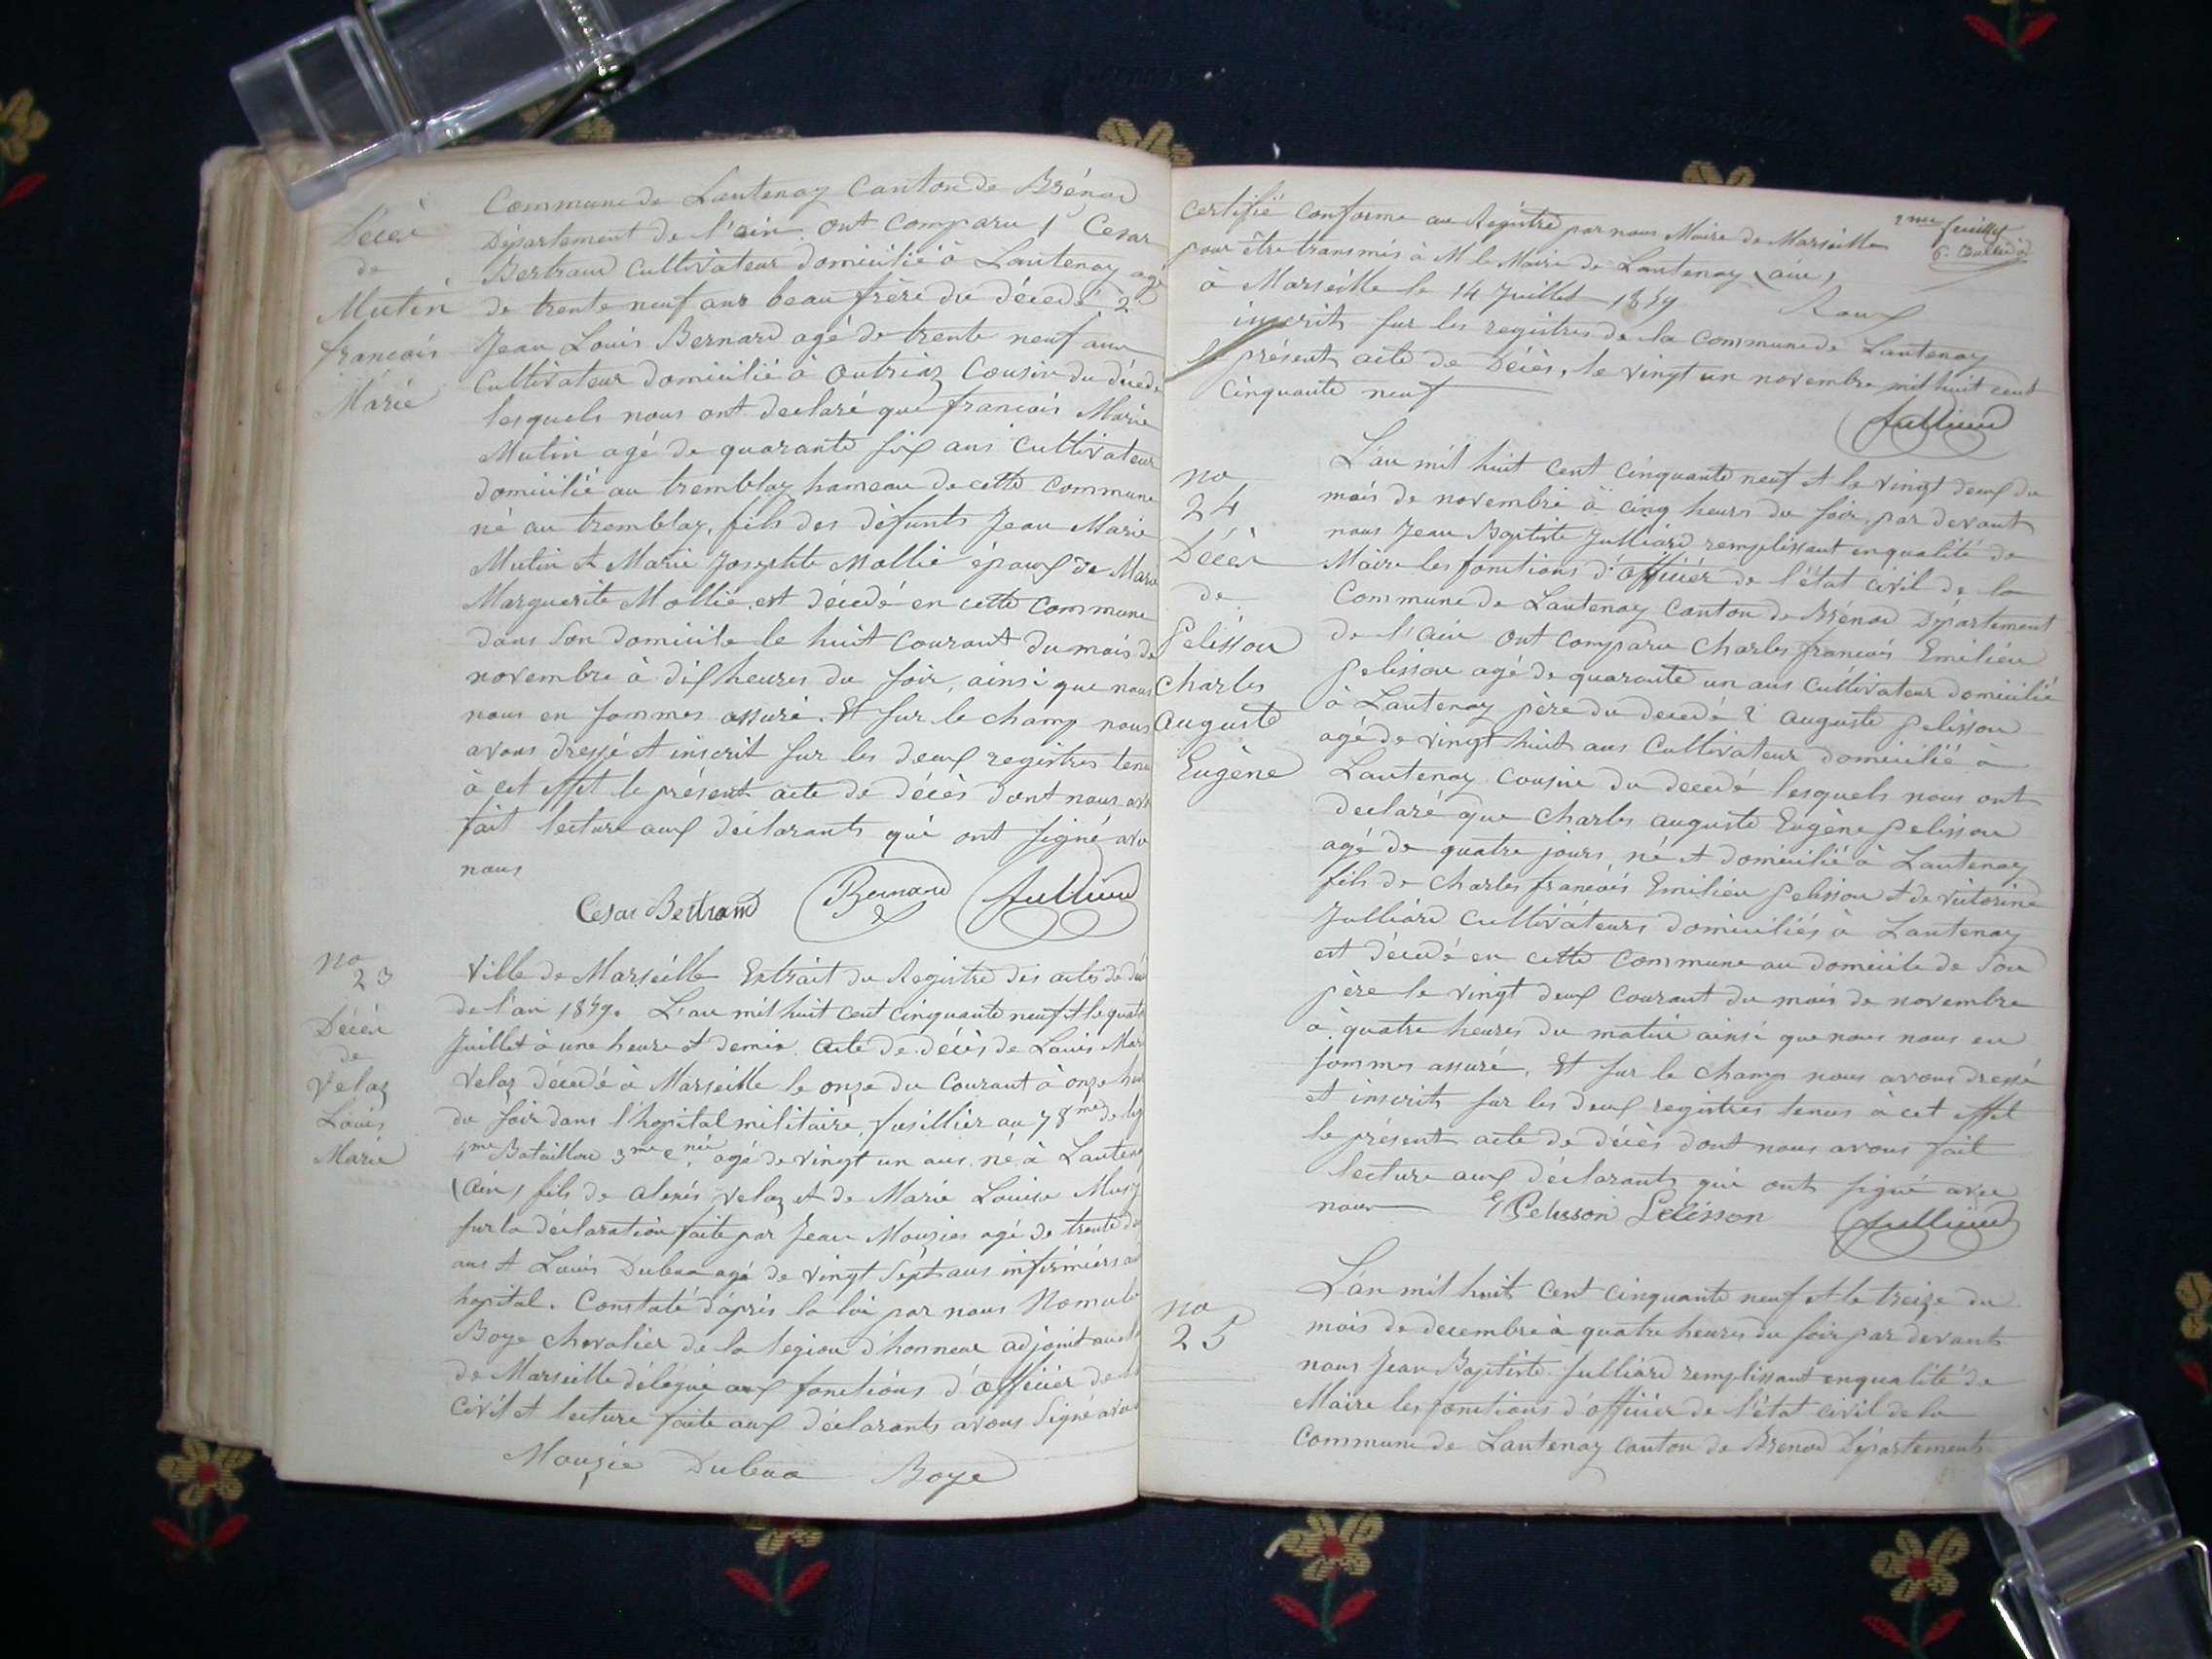 Décès
de
Mutin
francois
Marie
Commune de Lantenay Canton de Brénod
Département de l'ain ont Comparu 1° Cesar
Bertrand Cultivateur domicilié à Lantenay agé
de trente neuf ans beau frère du décedé 2°
Jean Louis Bernard agé de trente neuf ans
Cultivateur domicilié à Outriaz Cousin du décedé
lesquels nous ont declaré que francois Marie
Mutin agé de quarante six ans Cultivateur
domicilié au tremblay hameau de cette Commune
né au tremblay, fils des défunts Jean Marie
Mutin et Marie Josephte Mollie époux de Marie
Marguerite Mollie, est décedé en cette Commune
dans Son domicile le huit Courant du mois de
novembre à dix heures du soir, ainsi que nous
nous en sommes assuré. Et sur le champ nous
avons dressé et inscrit sur les deux registres tenu
à cet effet le présent acte de décès dont nous avo
fait lecture aux déclarants qui ont signé ave
nous
Cesar Bertrand Bernard Julliard
no
23
Décès
de
Velaz
Louis
Marie
Ville de Marseille Extrait du Registre des actes de déc
de l'an 1859. L'an mil huit Cent Cinquante neuf et le quato
Juillet à une heure et demie. Acte de décès de Louis Mari
Velaz décedé à Marseille le onze du Courant à onze heu
du soir dans l'hopital militaire, fusillier au 78me de lig
1me Bataillon 3me Cnie, agé de vingt un ans, né à Lanten
(Ain) fils de Alexis Velaz et de Marie Louise
sur la déclaration faite par Jean Mouzies agé de trente de
ans et Louis agé de vingt Sept ans infirmiers au
hopital. Constaté d'après la loi par nous
Boye Chevalier de la légion d'honneur adjoint au
de Marseille délégué aux fonctions d'officier de
Civil et lecture faite aux déclarants avons Signé ave
Mouzie Boye
2me feuillet
Certifié Conforme au Régistre par nous Maire de Marseille
pour être transmis à M le Maire de Lantenay (ain)
à Marseille le 14 Juillet 1859 Roux
inscrit sur les registres de la Commune de Lantenay
le présent acte de Décès, le vingt un novembre mil huit cent
Cinquante neuf
Julliard
no
24
Décès
de
Pelisson
Charles
Auguste
Eugène
L'an mil huit Cent Cinquante neuf et le vingt deux du
mois de novembre à cinq heurs du soir, par devant
nous Jean Baptiste Julliard remplissant enqualité de
Maire les fonctions d'officier de l'état Civil de la
Commune de Lantenay Canton de Brénod Département
de l'ain ont Comparu Charles francois Emilien
Pelisson agé de quarante un ans Cultivateur domicilié
à Lantenay père du decedé 2° Auguste Pelisson
agé de vingt huit ans Cultivateur domicilié à
Lantenay Cousin du decedé lesquels nous ont
declaré que Charles Auguste Eugène Pelisson
agé de quatre jours, né et domicilié à Lantenay
fils de Charles francois Emilien Pelisson et de victorine
Julliard Cultivateurs domiciliés à Lantenay
est décedé en cette Commune au domicile de Son
père le vingt deux Courant du mois de novembre
à quatre heures du matin ainsi que nous nous en
sommes assuré. Et sur le champ nous avons dressé
et inscrits sur les deux registres tenus à cet effet
le présent acte de décès dont nous avons fait
lecture aux déclarants qui ont signé avec
nous E Pelisson Pelisson Julliard
no
25
L'an mil huit Cent Cinquante neuf et le treize du
mois de decembre à quatre heures du soir par devant
nous Jean Baptiste Julliard remplissant enqualité de
Maire les fonctions d'officier de l'état Civil de la
Commune de Lantenay Canton de Brenod Département